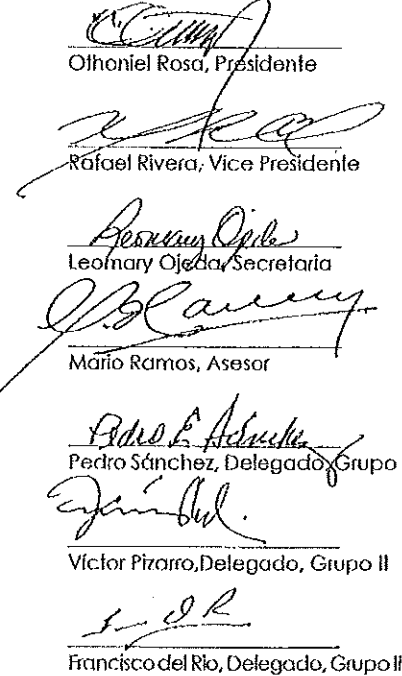 Othoniel Rosa, Presidente
Rafael Rivera, Vice Presidente
Leomary Ojeda
Leomary Ojeda, Secretaria
Mario Ramos, Asesor
Pedro E. Sánchez
Pedro Sánchez, Delegado, Grupo
Víctor Pizarro, Delegado, Grupo II
Francisco del Río, Delegado, Grupo II